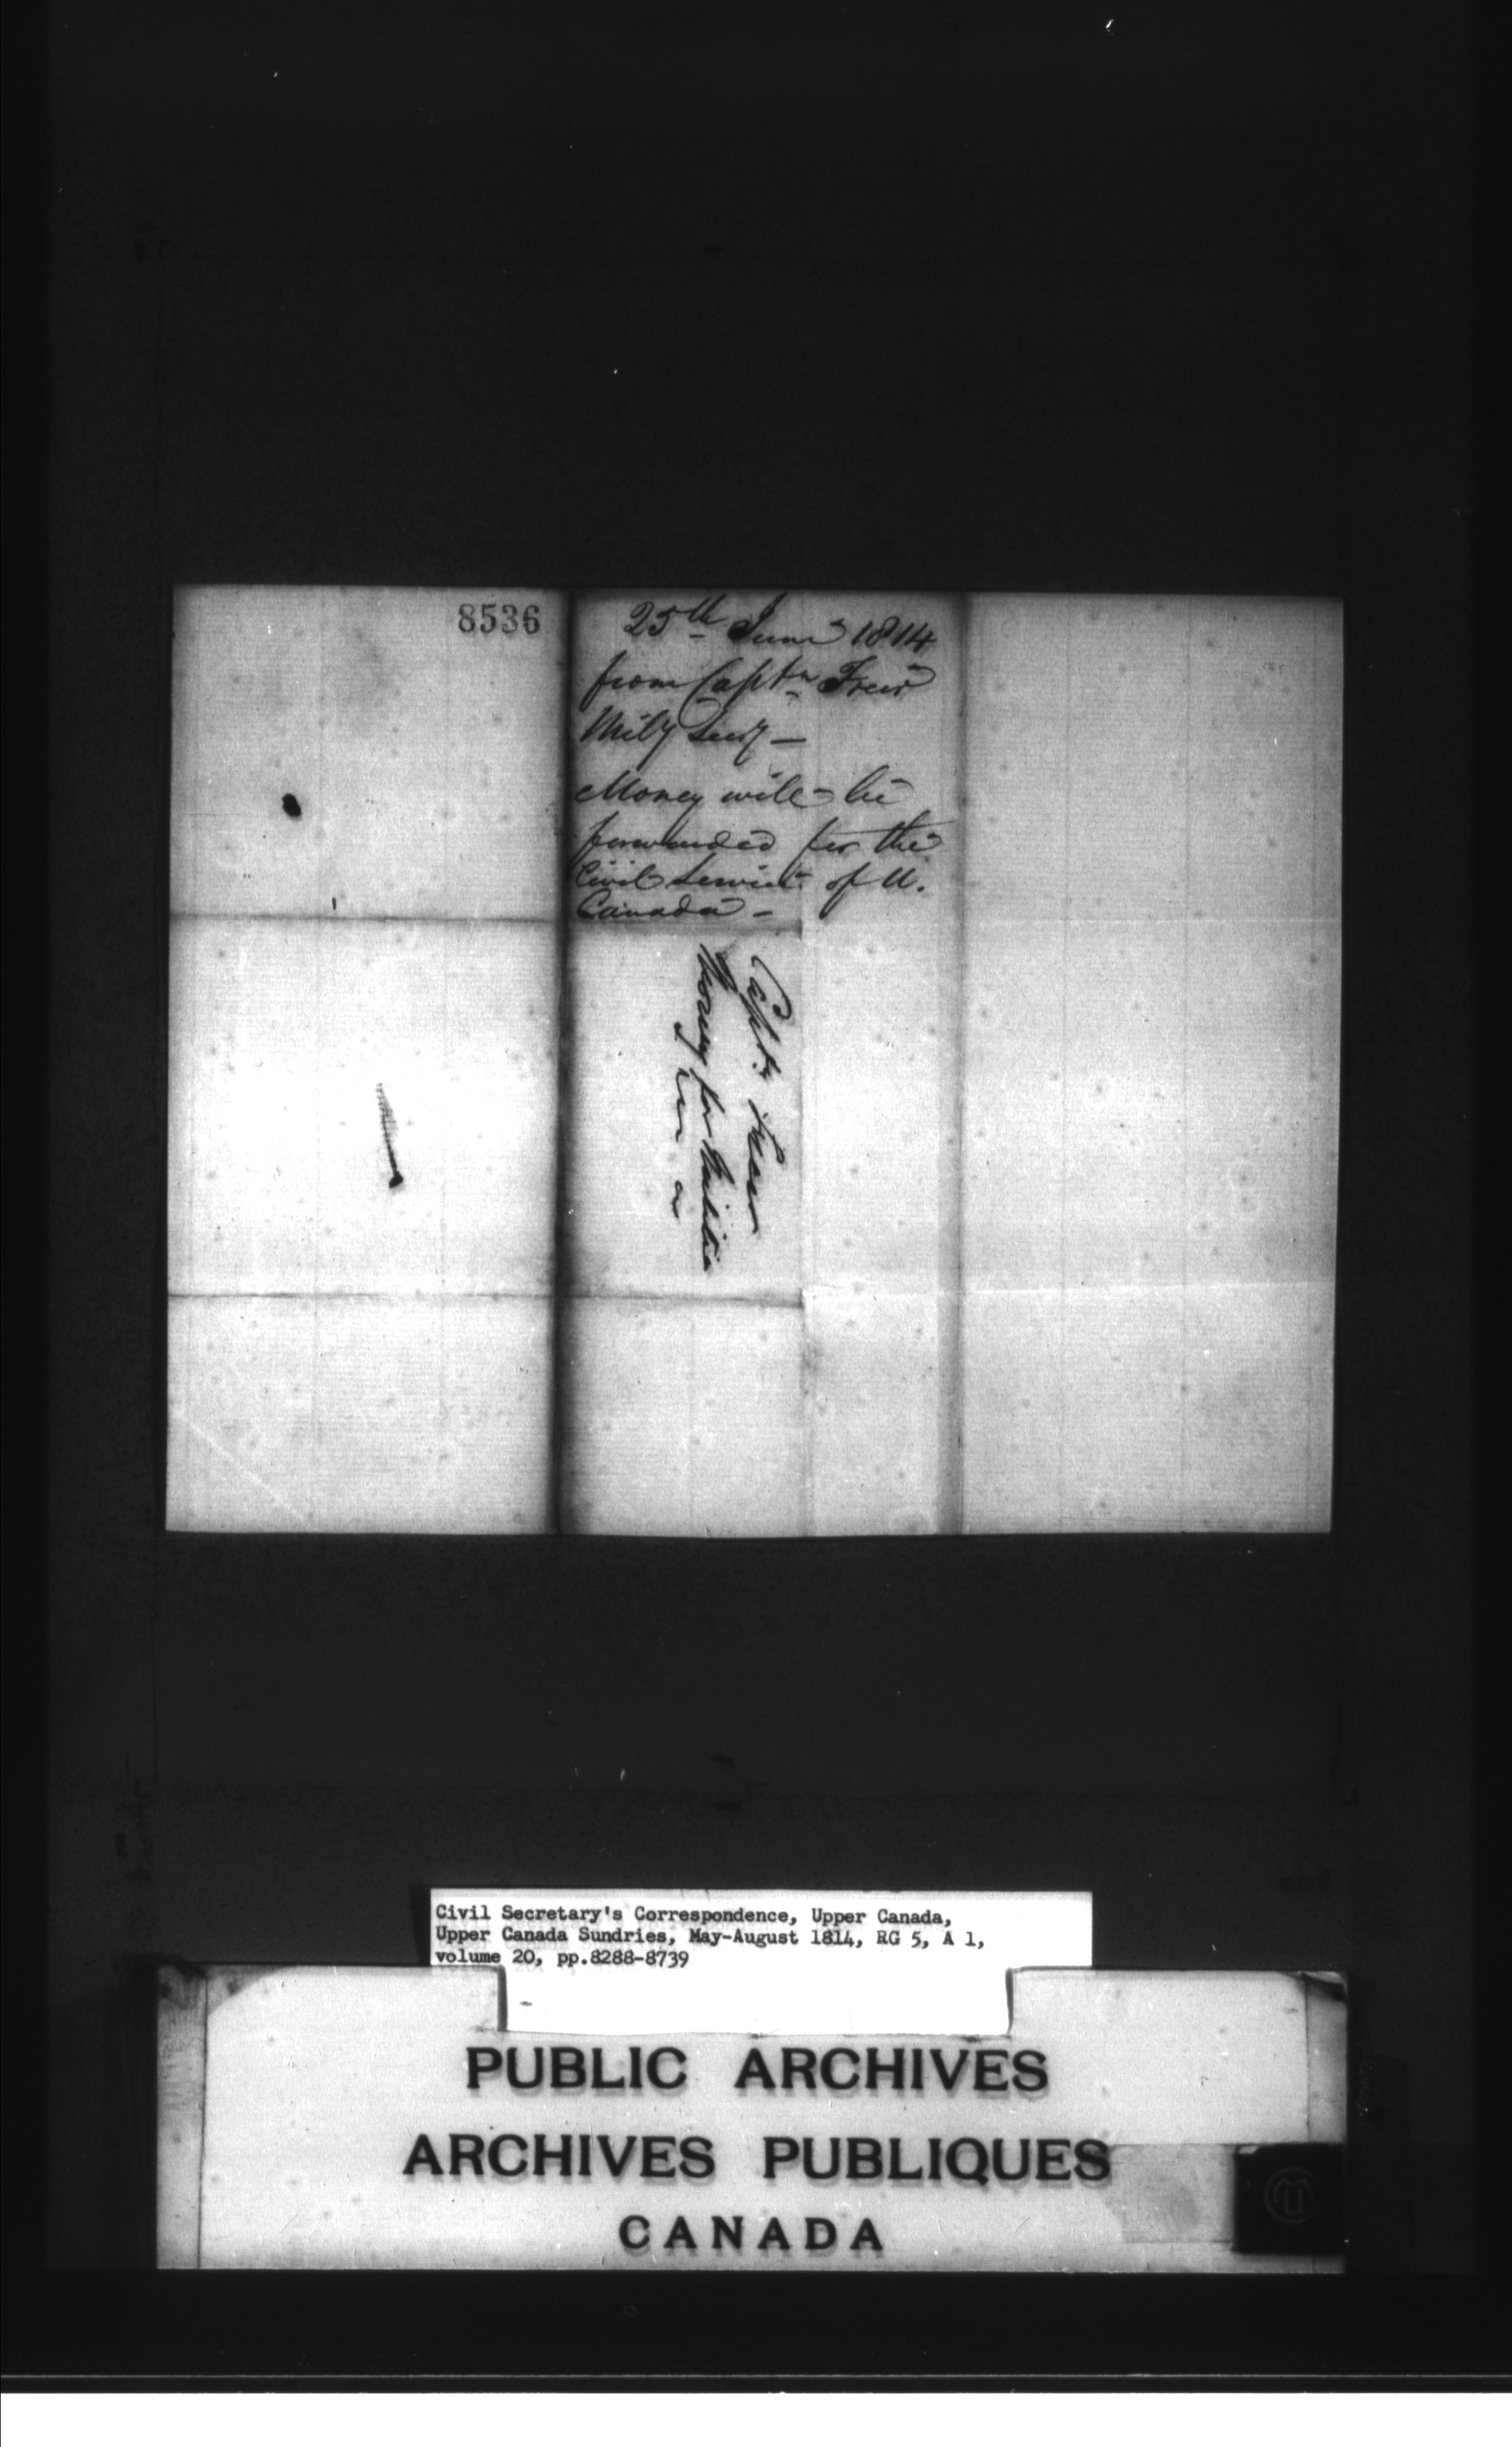 8536
25th June 1814
from Captn Freer
Mily Secy —
Money will be
forwarded for the
Civil Service of U.
Canada —
Captn Freer
Money for Militia
Civil Secretary's Correspondence, Upper Canada,
Upper Canada Sundries, May-August 1814, RG 5, A 1,
volume 20, pp.8288-8739
PUBLIC ARCHIVES
ARCHIVES PUBLIQUES
CANADA